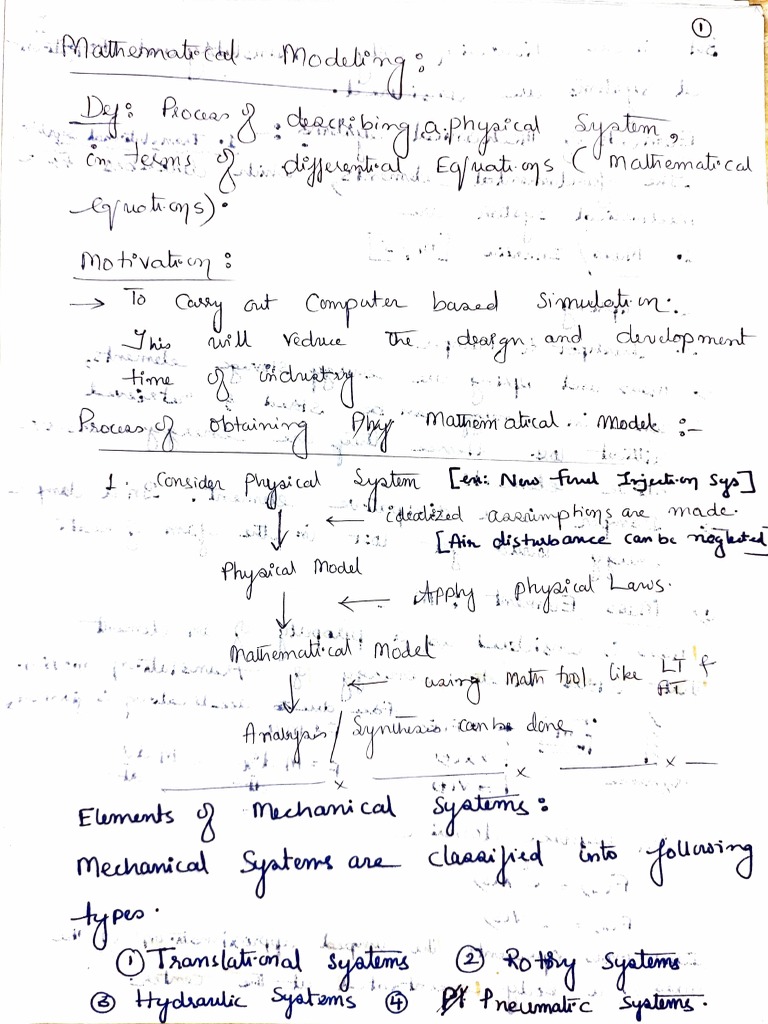 ①
Mathematical Modeling:
Def: Process of describing a physical System,
in terms of differential Equations ( Mathematical
equations).
Motivation:
→ To Carry out Computer based Simulation.
This will reduce the design and development
time of industry
Process of obtaining Phy Mathematical Model :-
1. Consider Physical System [ex: New Fuel Injection Sys]
← idealized assumptions are made.
[Air disturbance can be neglected]
Physical Model
← Apply Physical Laws.
Mathematical Model
← using Math tool, like LT &
Analysis / Synthesis can be done
x x x
Elements of Mechanical Systems:
Mechanical Systems are classified into following
types.
① Translational Systems ② Rotry Systems
③ Hydraulic Systems ④ Pneumatic Systems.